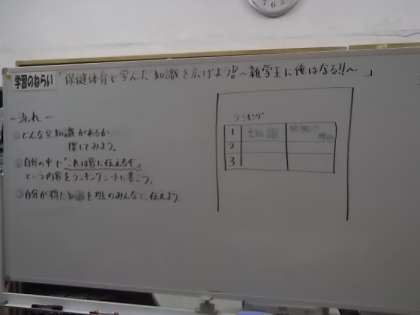 学習のねらい 「保健体育で学んだ知識を広げよう!!～雑学王に俺はなる!!～」
～流れ～
①どんな豆知識があるか
探してみよう。
②自分の中で「これは君に伝えるぞ」
という内容をランキングシートに書こう。
③自分が得た知識を班のみんなに伝えよう。
ランキング
1 豆知識
2
3